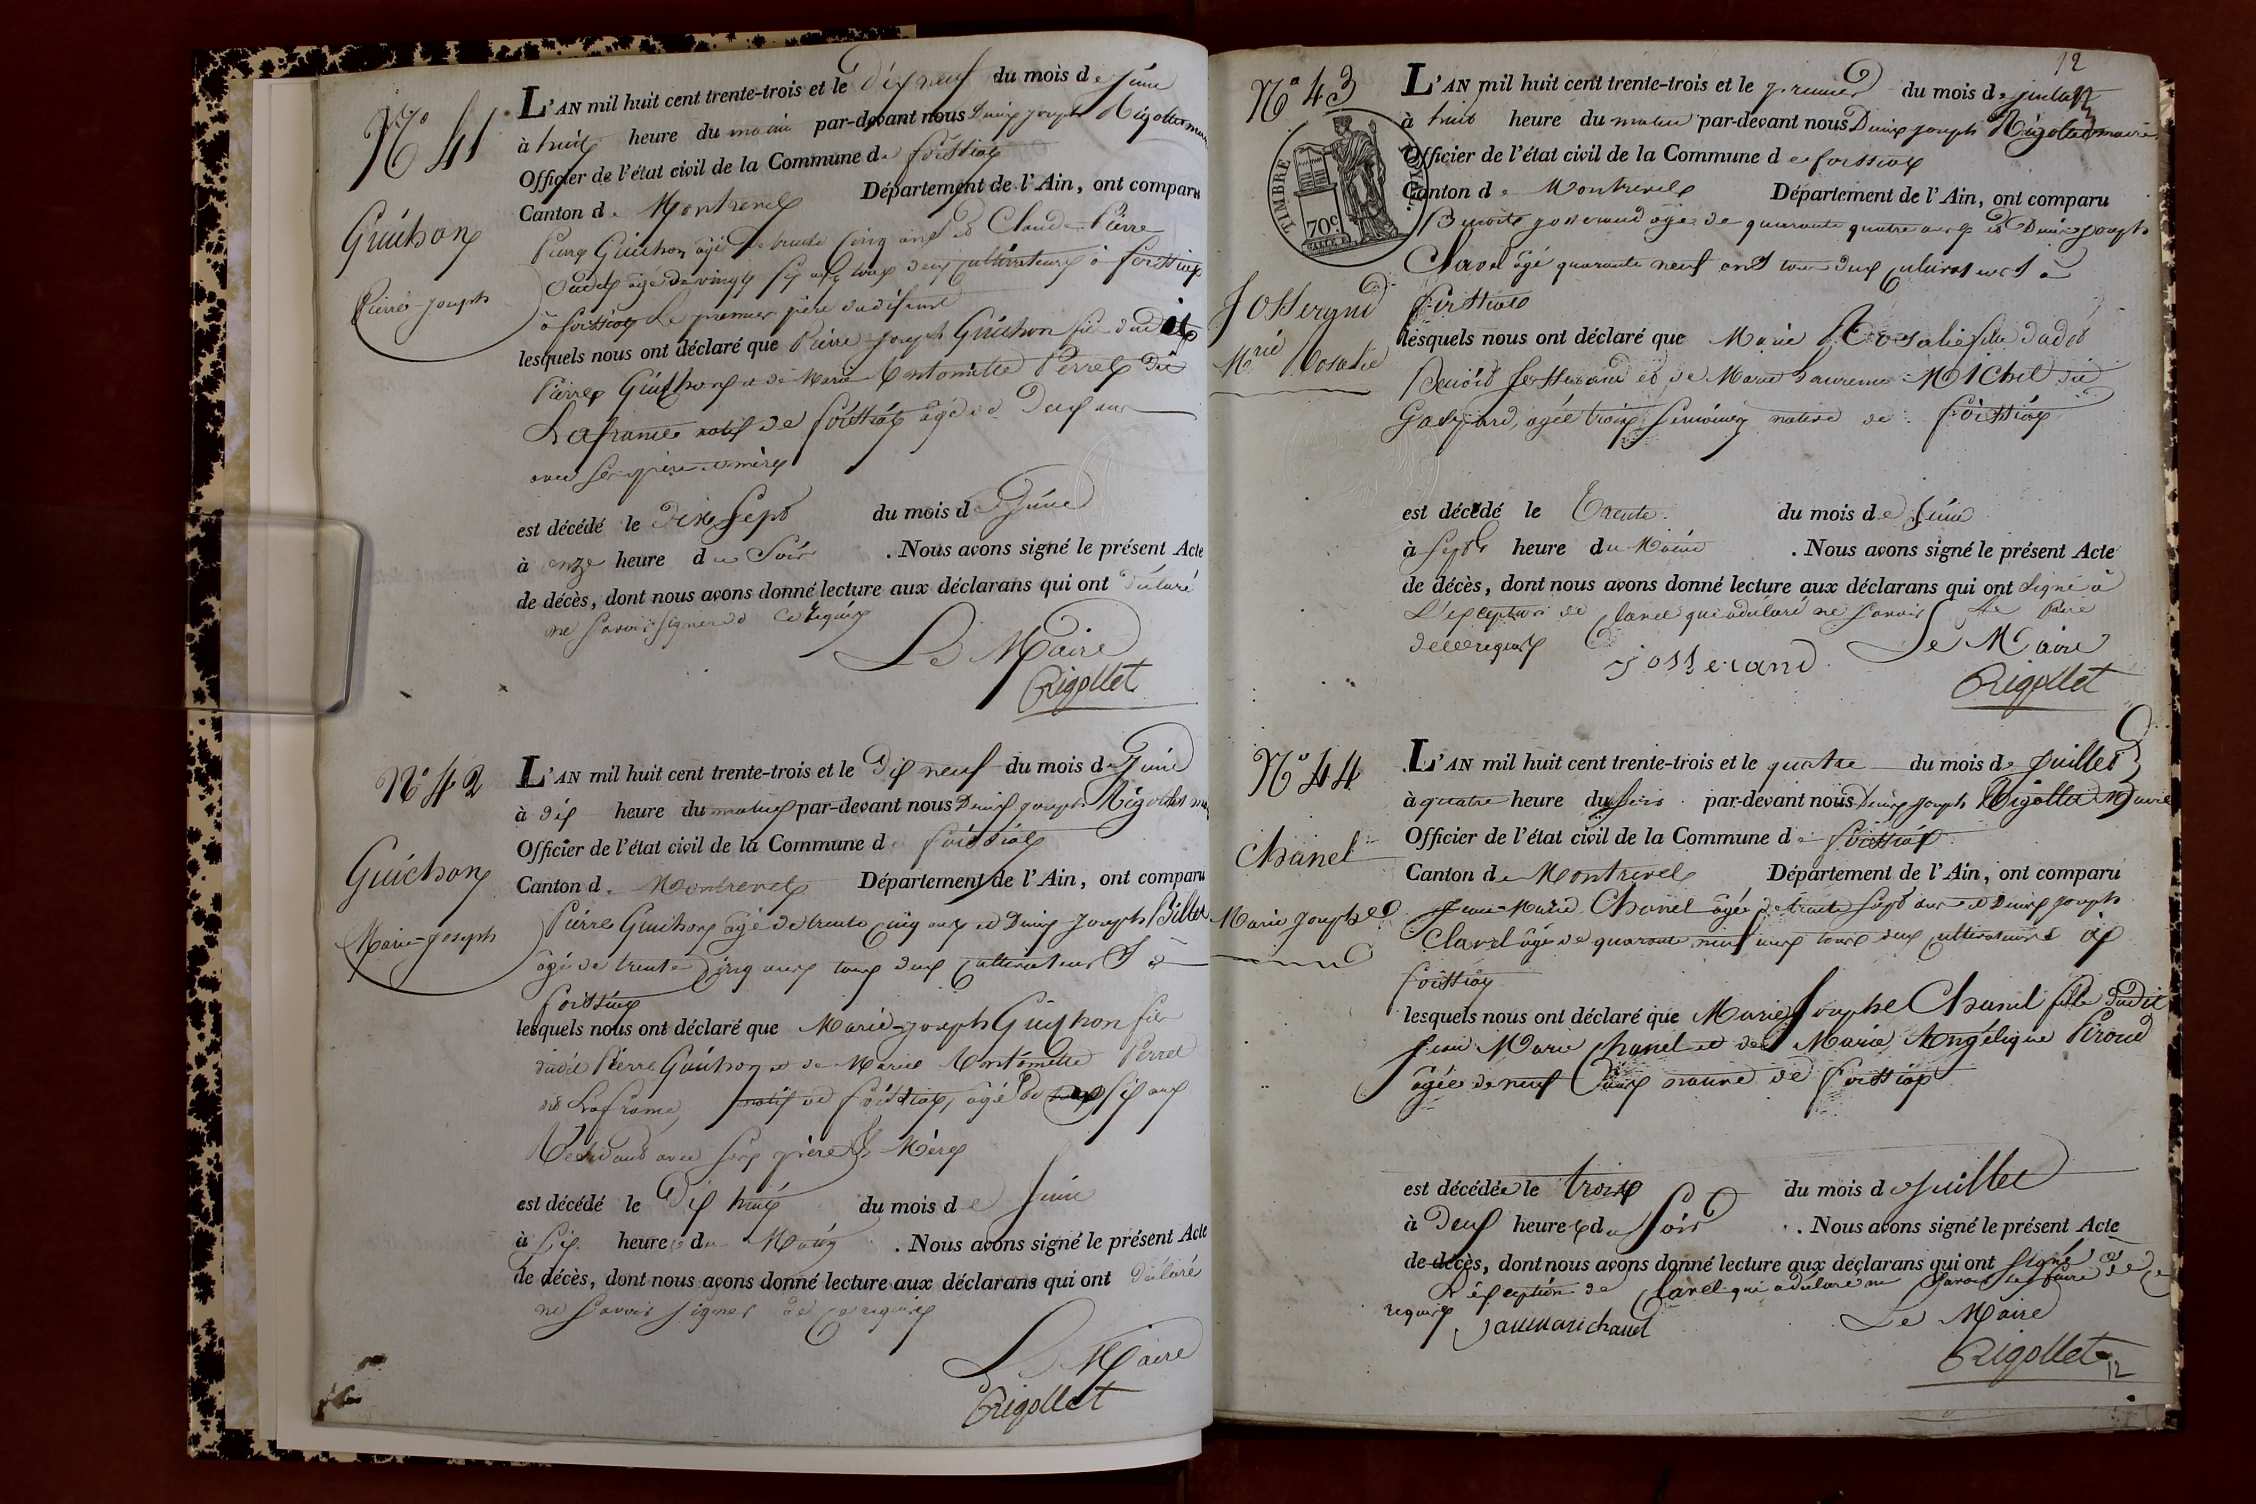 N° 41
Guichon
Pierre-Joseph
L'AN mil huit cent trente-trois et le dix neuf du mois de Juin
à huit heure du matin par-devant nous Denis Joseph Rigollet maire
Officier de l'état civil de la Commune de foissiat
Canton de Montrevel Département de l'Ain, ont comparu
Pierre Guichon âgé de trente cinq ans et Claude-Pierre
âgé de vingt six ans tous deux cultivateurs à foissiat
à foissiat le premier père du défunt
lesquels nous ont déclaré que Pierre-Joseph Guichon fils dudit
Pierre Guichon et de Marie Antoinette Perret dit
Lafrance natif de foissiat âgé de deux ans
avec ses père et mère
est décédé le dix sept du mois de Juin
à onze heure du Soir . Nous avons signé le présent Acte
de décès, dont nous avons donné lecture aux déclarans qui ont déclaré
ne savoir signer de ce requis
Le Maire
Rigollet
N° 42
Guichon
Marie-Joseph
L'AN mil huit cent trente-trois et le dix neuf du mois de Juin
à dix heure du matin par-devant nous Denis Joseph Rigollet maire
Officier de l'état civil de la Commune de foissiat
Canton de Montrevel Département de l'Ain, ont comparu
Pierre Guichon âgé de trente cinq ans et Denis Joseph Billet
âgé de trente cinq ans tous deux cultivateurs à
foissiat
lesquels nous ont déclaré que Marie-Joseph Guichon fils
dudit Pierre Guichon et de Marie Antoinette Perret
dit Lafrance, natif de foissiat, âgé de six ans
Résidant avec ses père et Mère
est décédé le dix huit du mois de Juin
à six heures du Matin . Nous avons signé le présent Acte
de décès, dont nous avons donné lecture aux déclarans qui ont déclaré
ne savoir signer de ce requis
Le Maire
Rigollet
12
N° 43
TIMBRE ROYAL
70c.
Josserand
Mrie Rosalie
L'AN mil huit cent trente-trois et le premier du mois de juillet
à huit heure du matin par-devant nous Denis Joseph Rigollet maire
Officier de l'état civil de la Commune de foissiat
Canton de Montrevel Département de l'Ain, ont comparu
Benoit Josserand âgé de quarante quatre ans et Denis Joseph
Clavel âgé quarante neuf ans tous deux cultivateurs à
foissiat
lesquels nous ont déclaré que Marie Rosalie fille dudit
Benoit Josserand et de Marie Laurence Michel dit
âgée trois semaines native de foissiat
est décédé le trente du mois de Juin
à sept heure du Matin . Nous avons signé le présent Acte
de décès, dont nous avons donné lecture aux déclarans qui ont signé à
L'exception de Clavel qui a déclaré ne savoir le faire
de ce requis
josserand
Le Maire
Rigollet
N° 44
Chanel
Marie Josephe
L'AN mil huit cent trente-trois et le quatre du mois de Juillet
à quatre heure du soir par-devant nous Denis Joseph Rigollet Maire
Officier de l'état civil de la Commune de foissiat
Canton de Montrevel Département de l'Ain, ont comparu
Jean-Marie Chanel âgé de trente sept ans et Denis Joseph
Clavel âgé de quarante neuf ans tous deux cultivateurs à
foissiat
lesquels nous ont déclaré que Marie Josephe Chanel fille dudit
Jean Marie Chanel et de Marie Angélique Piroud
âgée de neuf ans native de foissiat
est décédée le trois du mois de Juillet
à deux heures du Soir . Nous avons signé le présent Acte
de décès, dont nous avons donné lecture aux déclarans qui ont signé à
L'exception de Clavel qui a déclaré ne savoir le faire de ce
requis
janmarichanel
Le Maire
Rigollet
12